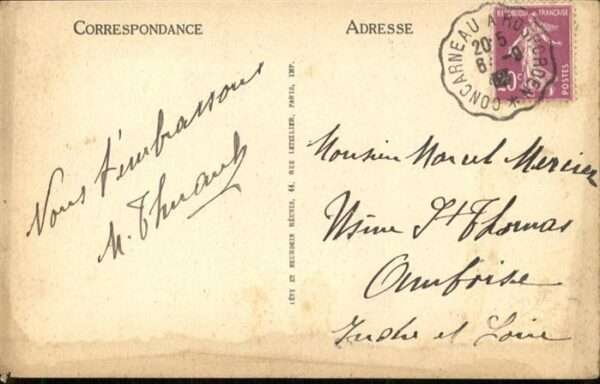 CORRESPONDANCE
ADRESSE
CONCARNEAU A ROSPORDEN
20-5
6 -9
RÉPUBLIQUE FRANÇAISE
20c
POSTES
Nous t'embrassons
M. Thuault
LÉVY ET NEURDEIN RÉUNIS, 44, RUE LETELLIER, PARIS, IMP.
Monsieur Marcel Mercier
Usine St Thomas
Amboise
Indre et Loire